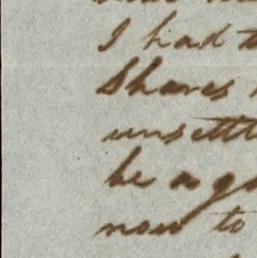 I had t
Shares
unsettl
be a go
now to